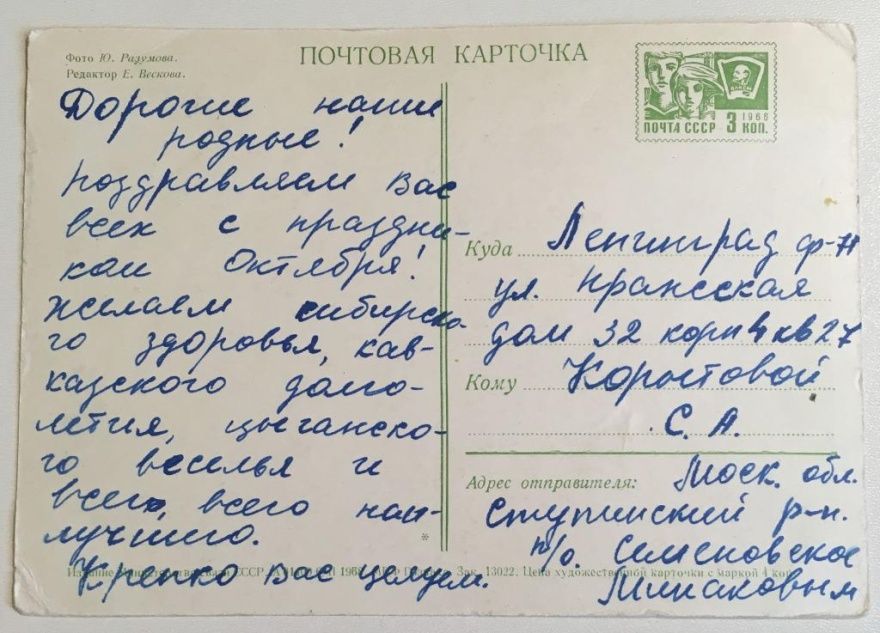 Фото Ю. Разумова.
Редактор Е. Вескова.
ПОЧТОВАЯ КАРТОЧКА
ПОЧТА СССР 3 КОП.
1966
Дорогие наши
родные!
Поздравляем Вас
всех с праздни-
ком Октября!
Желаем сибирско-
го здоровья, кав-
казского долго-
летия, цыганско-
го веселья и
всего, всего наи-
лучшего.
Крепко Вас целуем.
Куда Ленинград ф-
ул.
дом 32 корп 4 кв 27
Кому Коростовой
С. А.
Адрес отправителя: Моск. обл.
Ступинский р-н.
п/о. Семеновское
Издание Министерства связи СССР
Зак. 13022. Цена художественной карточки с маркой 4 коп.